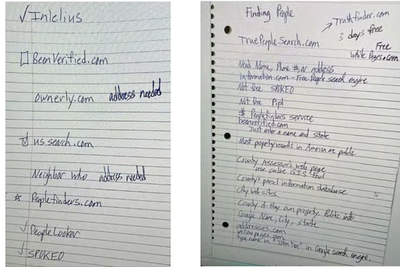 ✓ Intelius
☐ BeenVerified.com
ownerly.com address needed
☑ ussearch.com
Neighbor Who address needed
* Peoplefinders.com
✓ PeopleLooker
✓ SPOKEO
Finding People
→ Truthfinder.com
3 days free
TruePeopleSearch.com
Free
White Pages.com
Need Name, Phone #, or address
information.com - Free People search engine
Not free SPOKEO
Not free Pipl
# PeopleFinders service
beenverified.com
Just enter a name and state
Most property records in America are public
County Assessor's web page
use online GIS tool
County's parcel information database
City web sites
County if they own property. Public info
Google Name, City, State
addresses.com
yellowpages.com
Type name in "John Doe" in Google search engine.